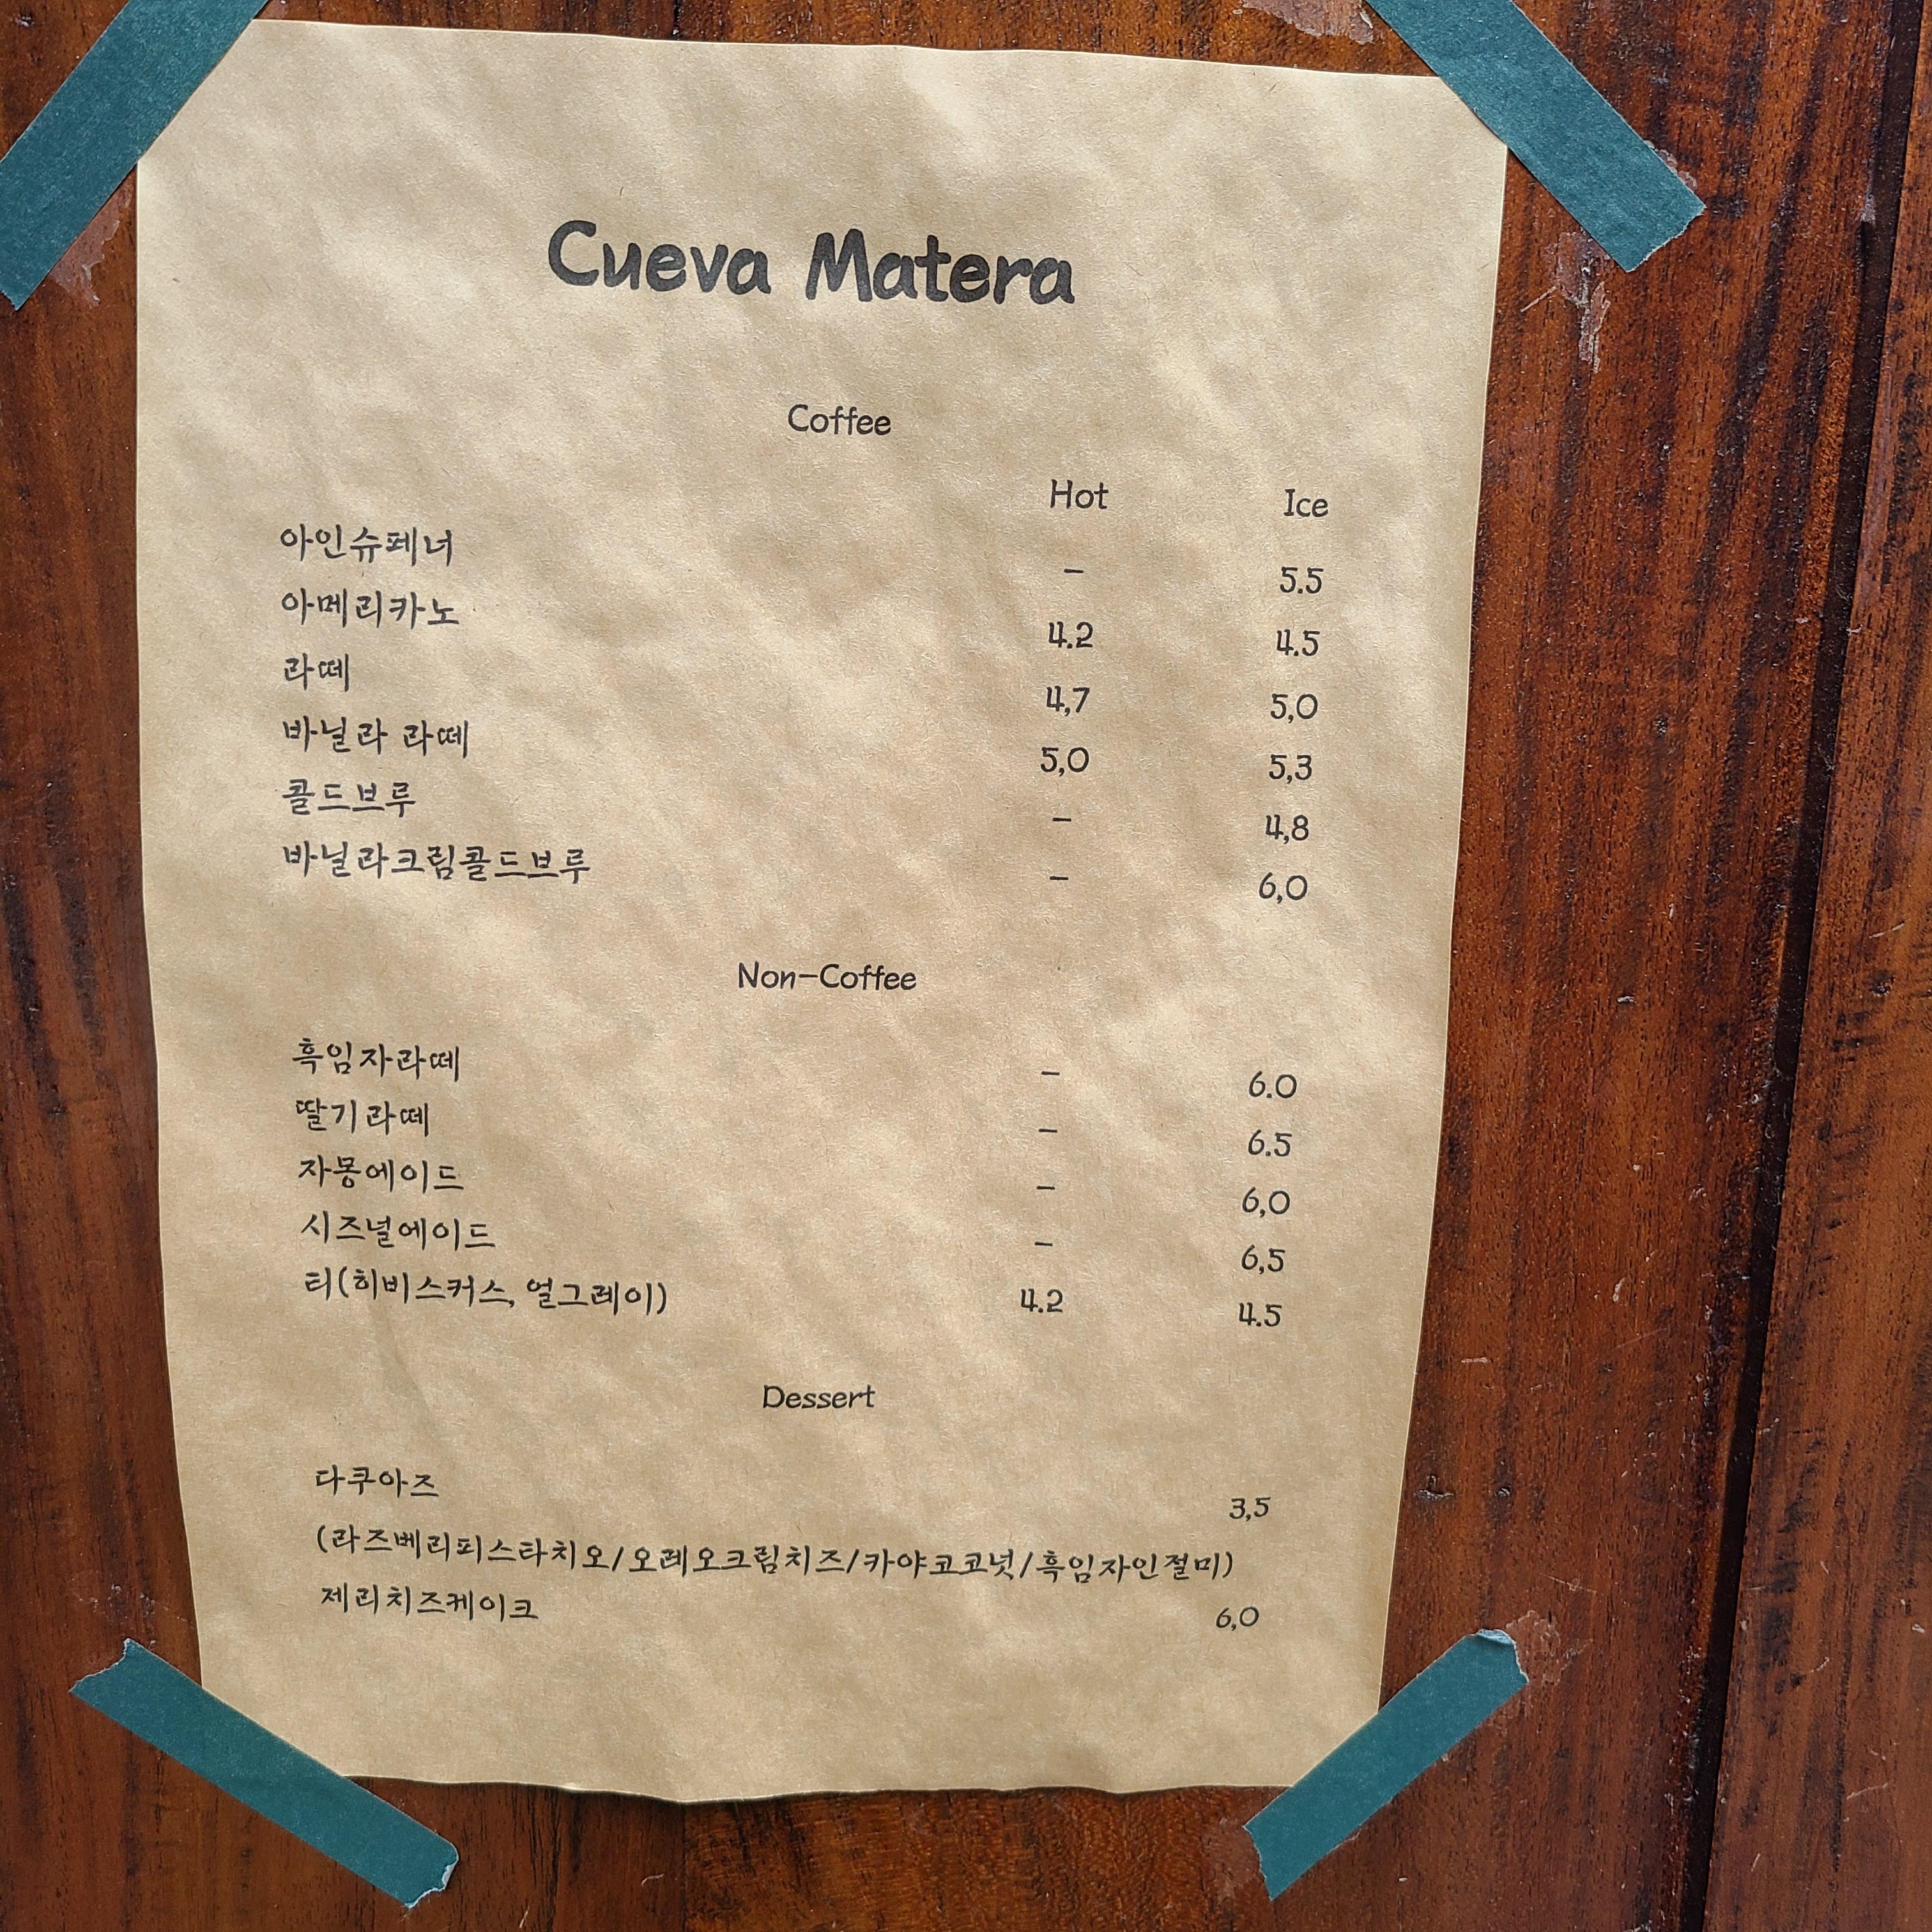 Cueva Matera
Coffee
Hot Ice
아인슈페너 - 5.5
아메리카노 4.2 4.5
라떼 4,7 5,0
바닐라 라떼 5,0 5,3
콜드브루 - 4,8
바닐라크림콜드브루 - 6,0
Non-Coffee
흑임자라떼 - 6.0
딸기라떼 - 6.5
자몽에이드 - 6,0
시즈널에이드 - 6,5
티(히비스커스, 얼그레이) 4.2 4.5
Dessert
다쿠아즈 3,5
(라즈베리피스타치오/오레오크림치즈/카야코코넛/흑임자인절미)
제리치즈케이크 6,0